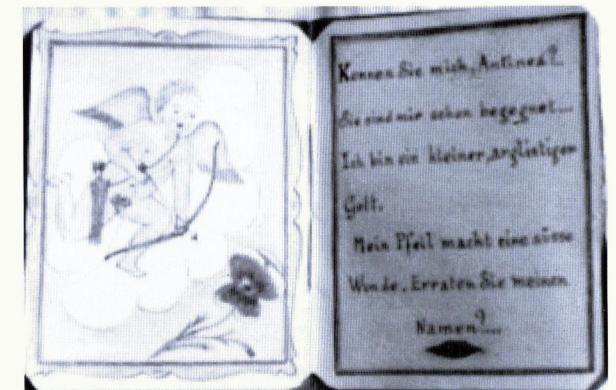 Kennen Sie mich, Antinea?..
Sie sind mir schon begegnet...
Ich bin ein kleiner, arglistiger
Gott.
Mein Pfeil macht eine süsse
Wunde. Erraten Sie meinen
Namen?...